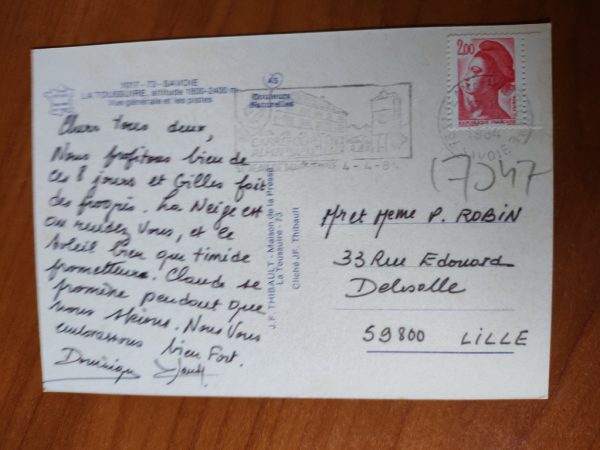 1017 - 73 - SAVOIE
LA TOUSSUIRE, altitude 1800-2400 m.
Vue générale et les pistes
45
Couleurs
Naturelles
Chers tous deux,
Nous profitons bien de
ces 8 jours et Gilles fait
des progrès. La Neige est
au rendez Vous, et le
soleil bien que timide
prometteur. Claude se
promène pendant que
nous skions. Nous Vous
embrassons bien Fort.
Dominique
J.F. THIBAULT - Maison de la Presse
La Toussuire - 73
Cliché JF. Thibault
2,00
REPUBLIQUE FRANÇAISE
4-4-84
1984
SAVOIE
(7) 247
Mr et Meme P. ROBIN
33 Rue Edouard
Delesalle
59800 LILLE